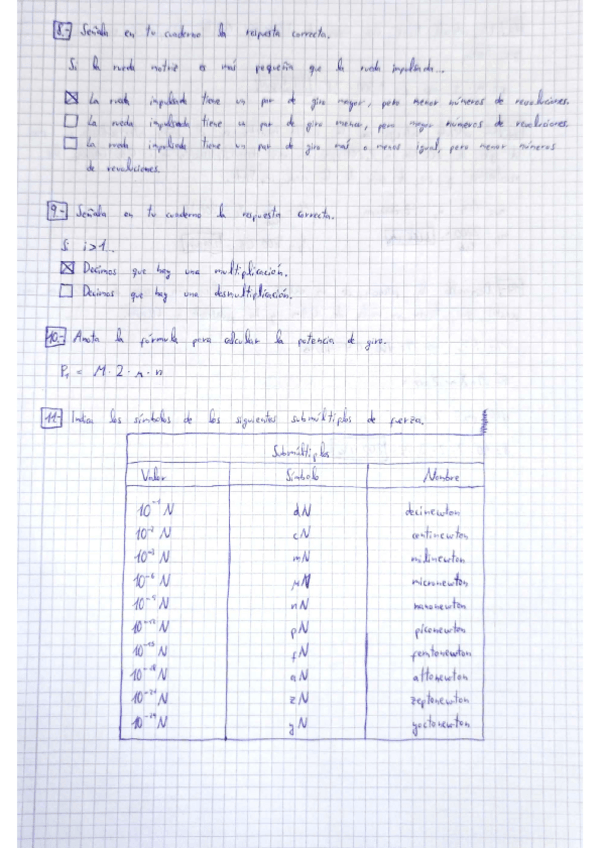 8.- Señala en tu cuaderno la respuesta correcta.
Si la rueda motriz es más pequeña que la rueda impulsada...
☒ La rueda impulsada tiene un par de giro mayor, pero menor números de revoluciones.
☐ La rueda impulsada tiene un par de giro menor, pero mayor números de revoluciones.
☐ La rueda impulsada tiene un par de giro más o menos igual, pero menor números
de revoluciones.
9.- Señala en tu cuaderno la respuesta correcta.
Si i>1...
☒ Decimos que hay una multiplicación.
☐ Decimos que hay una desmultiplicación.
10.- Anota la fórmula para calcular la potencia de giro.
= M · 2 · π · n
11.- Indica los símbolos de los siguientes submúltiplos de fuerza.
Submúltiplos
Valor Símbolo Nombre
10⁻¹ N dN decinewton
10⁻² N cN centinewton
10⁻³ N mN milinewton
10⁻⁶ N μN micronewton
10⁻⁹ N nN nanonewton
10⁻¹² N pN piconewton
10⁻¹⁵ N fN femtonewton
10⁻¹⁸ N aN attonewton
10⁻²¹ N zN zeptonewton
10⁻²⁴ N yN yoctonewton